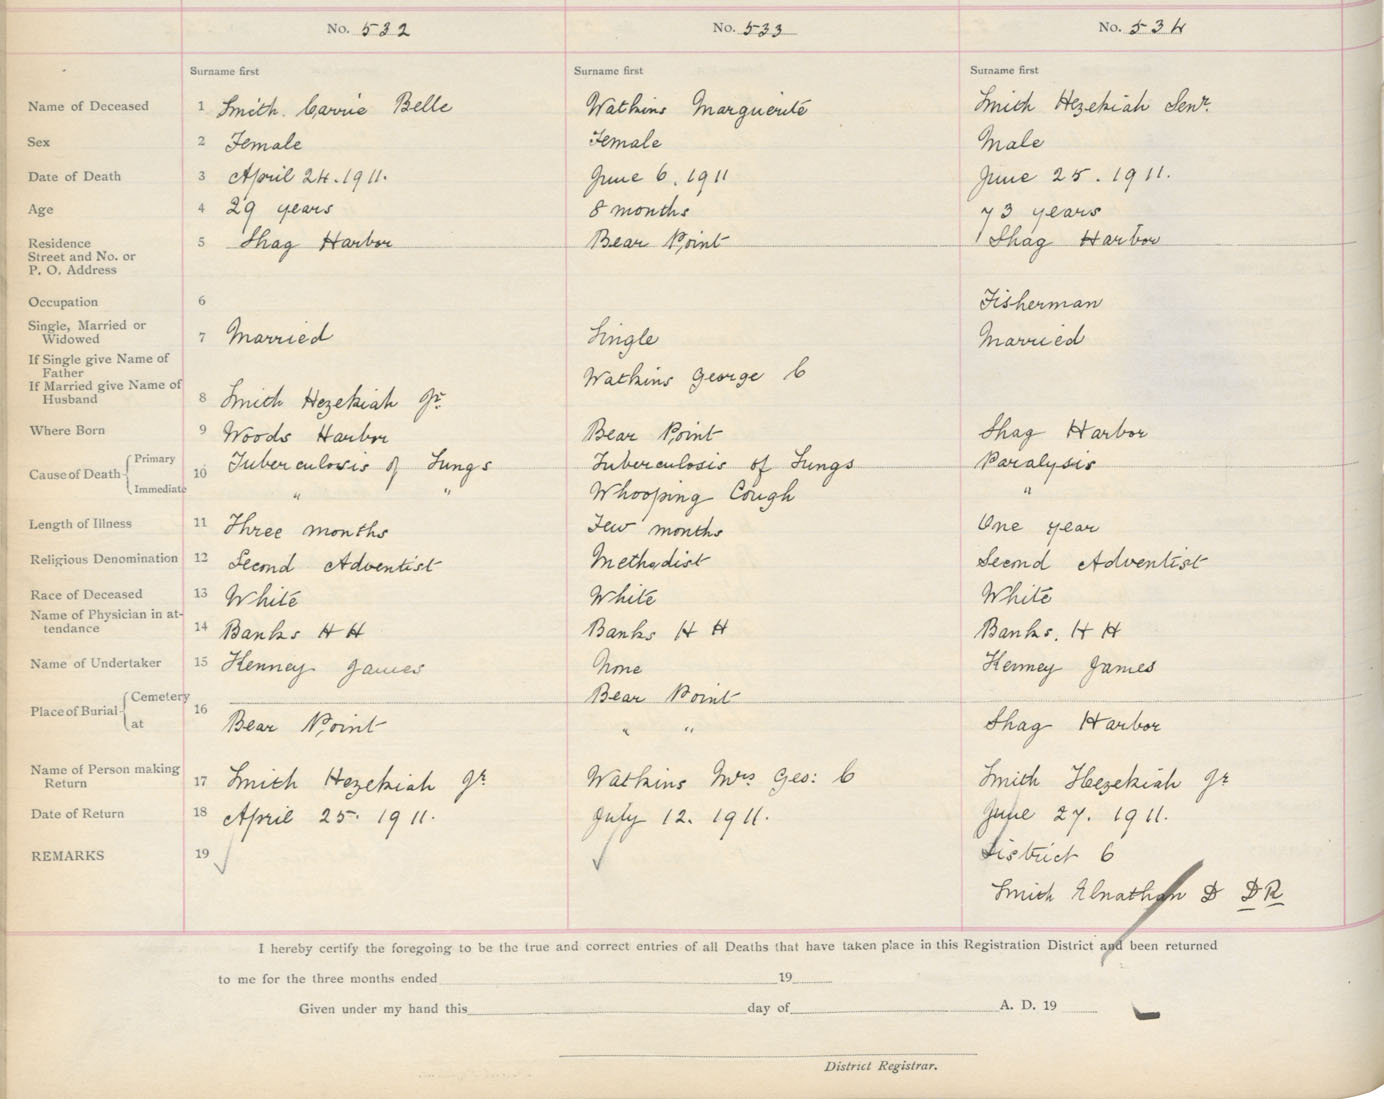 No. 532 No. 533 No. 534
Surname first Surname first Surname first
Name of Deceased 1 Smith Carrie Belle Watkins Marguerite Smith Hezekiah Senr.
Sex 2 Female Female Male
Date of Death 3 April 24. 1911. June 6. 1911 June 25. 1911.
Age 4 29 years 8 months 73 years
Residence 5 Shag Harbor Bear Point Shag Harbor
Street and No. or
P. O. Address
Occupation 6 Fisherman
Single, Married or
Widowed 7 Married Single Married
If Single give Name of
Father Watkins George C
If Married give Name of
Husband 8 Smith Hezekiah Jr.
Where Born 9 Woods Harbor Bear Point Shag Harbor
Cause of Death Primary 10 Tuberculosis of Lungs Tuberculosis of Lungs Paralysis
Immediate " " Whooping Cough "
Length of Illness 11 Three months Few months One year
Religious Denomination 12 Second Adventist Methodist Second Adventist
Race of Deceased 13 White White White
Name of Physician in at-
tendance 14 Banks H H Banks H H Banks. H H
Name of Undertaker 15 Kenney James None Kenney James
Place of Burial Cemetery 16 Bear Point
at Bear Point " " Shag Harbor
Name of Person making
Return 17 Smith Hezekiah Jr Watkins Mrs Geo: C Smith Hezekiah Jr
Date of Return 18 April 25. 1911. July 12. 1911. June 27. 1911.
REMARKS 19 District 6
Smith Elnathan D DR
I hereby certify the foregoing to be the true and correct entries of all Deaths that have taken place in this Registration District and been returned
to me for the three months ended 19
Given under my hand this day of A. D. 19
District Registrar.